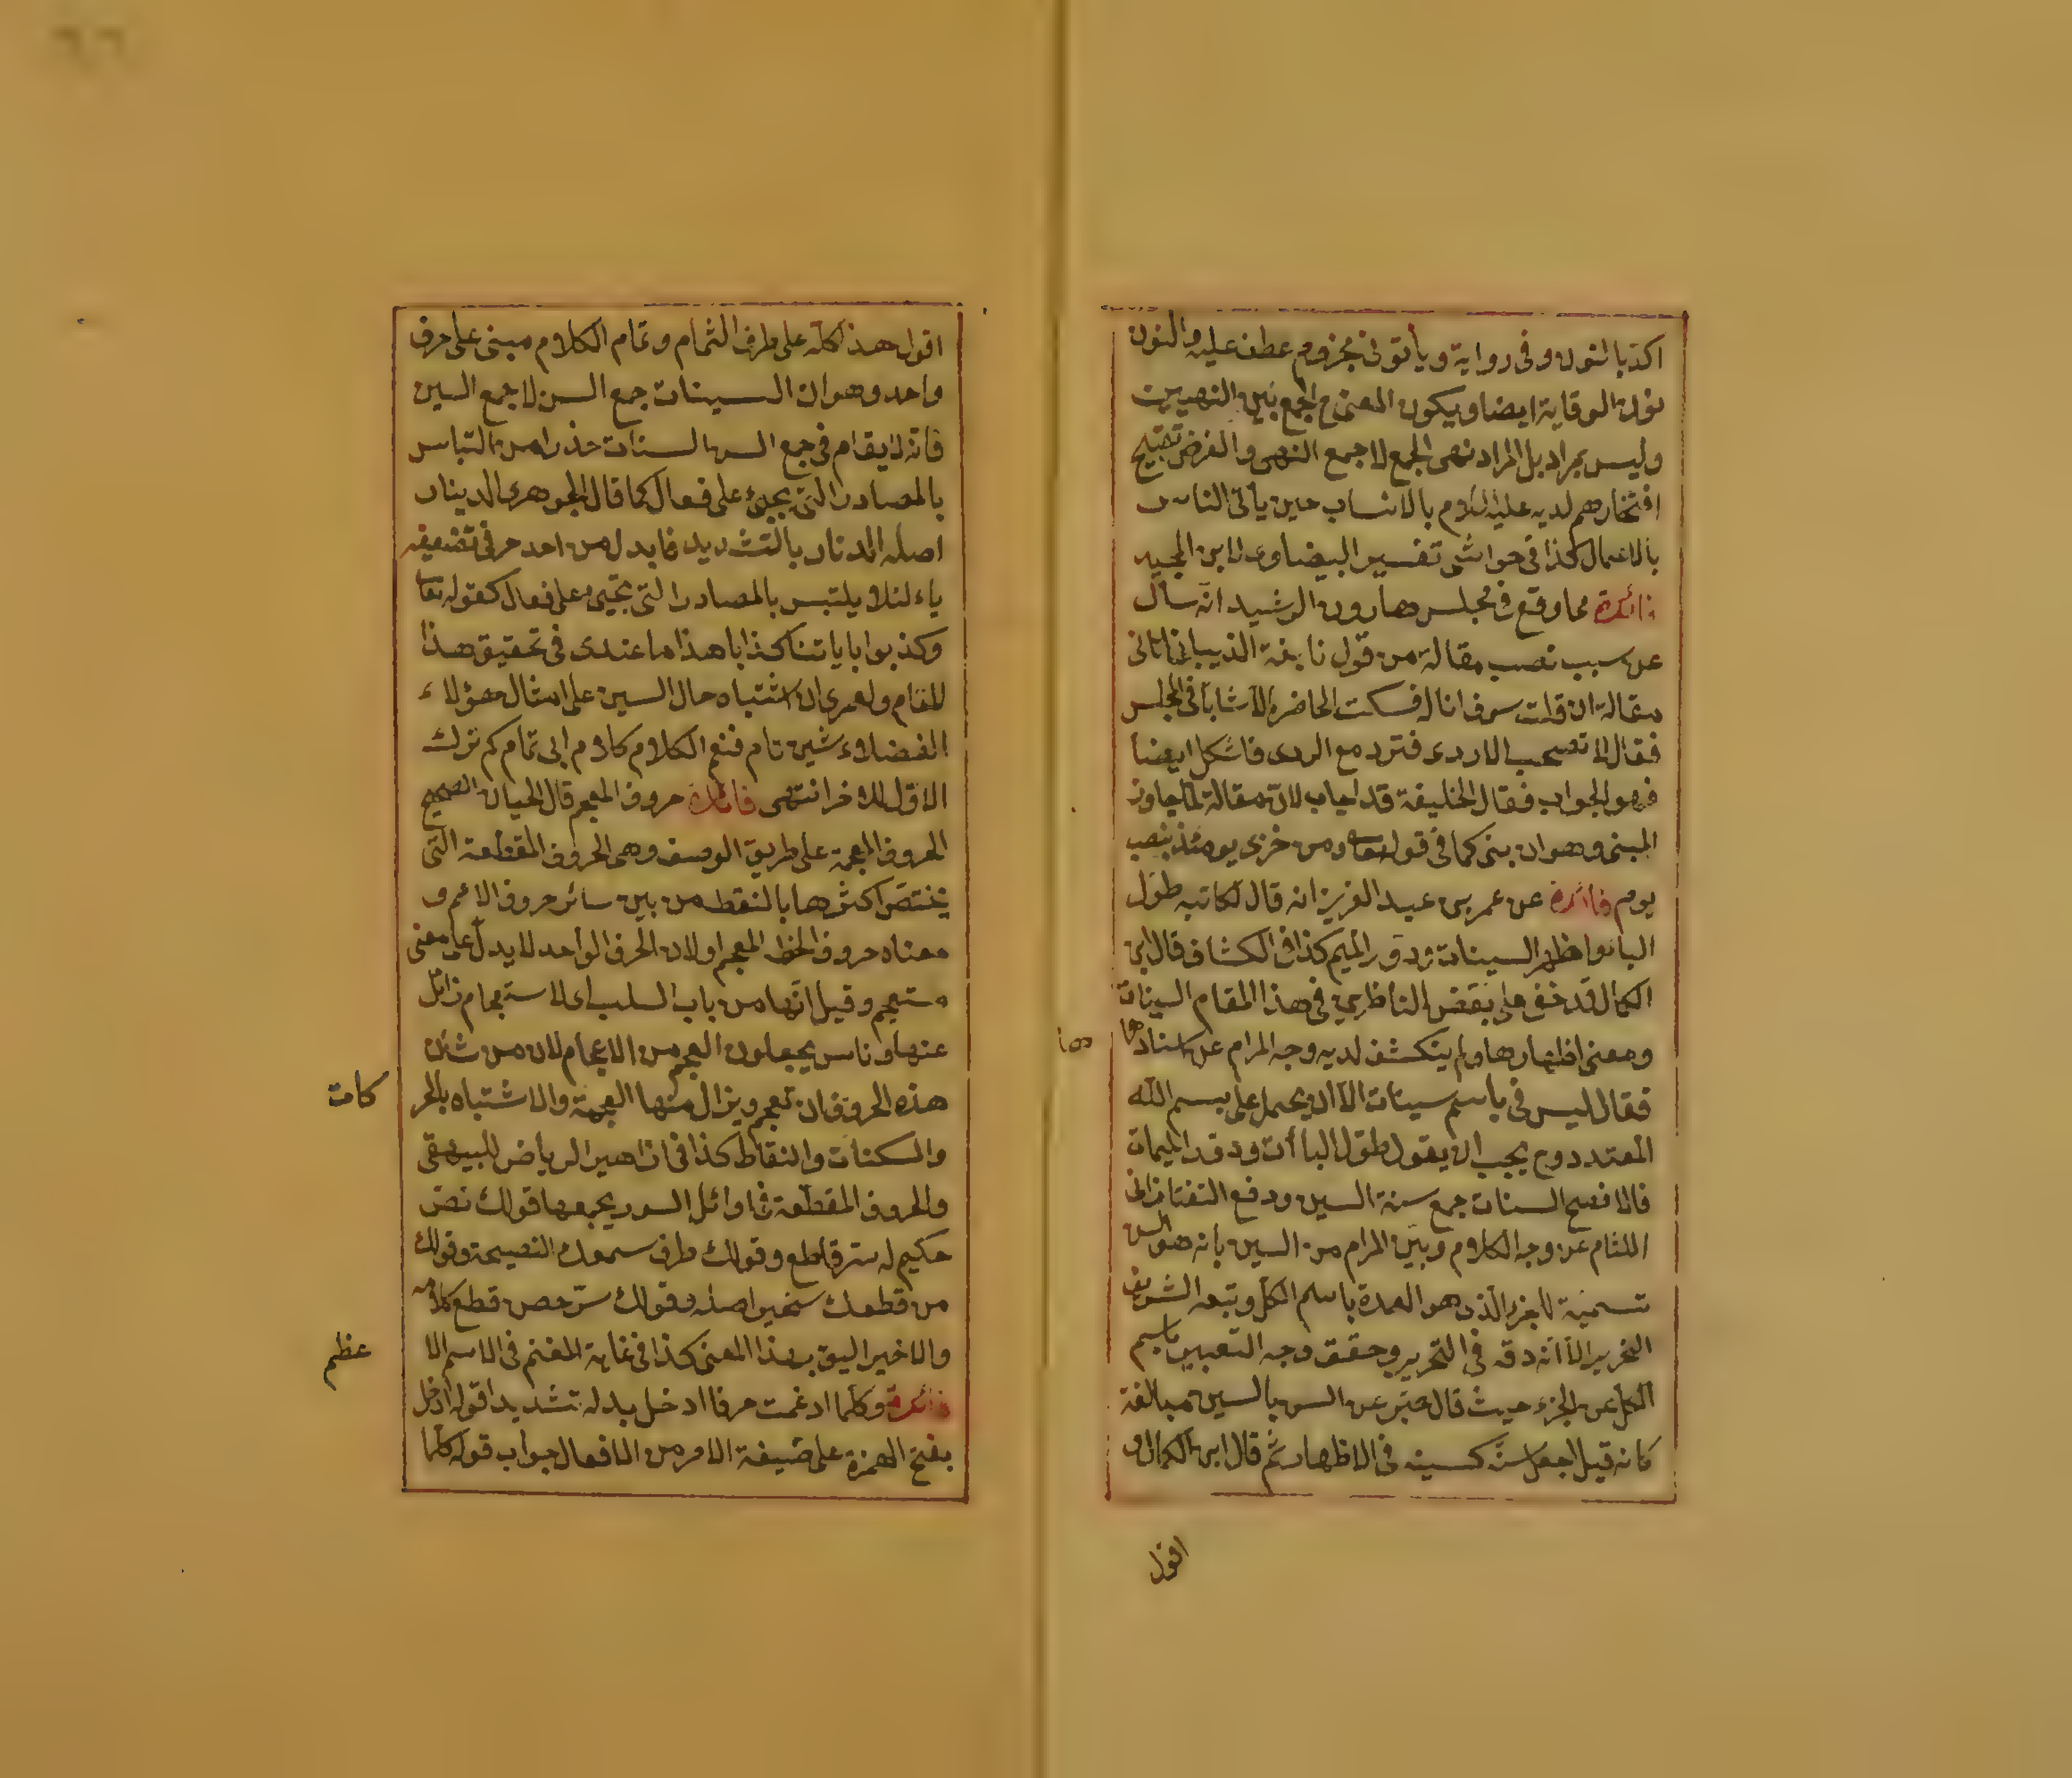 اكذبا النون وفى رواية ويأتونى مجزوم عطف عليه والنون
نون الوقاية ايضا ويكون المعنى ح الجمع بين النهيين
وليس بمراد بل المراد نهى الجمع لا جمع النهى والغرض تقبيح
افتخارهم لديه عليه السلام بالانساب حين يأتى الناس
بالاعمال كذا فى حواشى تفسير البيضاوى لابن المجيد
فائدة مما وقع فى مجلس هارون الرشيد انه سأل
عن سبب نصب مقالة من قول نابغة الذبيانى اتانى
مقالة ان قلت سوف اناله فسكت الحاضر الا شابا فى المجلس
فقال لا تصحب الاردى فتردى مع الردى فاشكل ايضا
فهو الجواب فقال الخليفة قد اجاب لان مقالة لما جاوز
المبنى وهو ان بنى كما فى قوله تعالى ومن خزى يومئذ بنصب
يوم فائدة عن عمر بن عبد العزيز انه قال لكاتبه طول
الباء واظهر السينات ودور الميم كذا فى الكشاف قال ابن
الكمال قد خفى على بعض الناظرين فى هذا المقام السينات
ومعنى اظهارها ولم ينكشف لديه وجه المرام عن اسنادها
فقال ليس فى باسم سينات الا ان يحمل على بسم الله
المتعدد وح يجب ان يقول طول الباأت ودور الميمات
فالافصح السنات جمع سنة السين ودفع التفتازانى
اللثام عن وجه الكلام وبين المرام من السين بانه هو السن
تسمية للجزء الذى هو العمدة باسم الكل وتبعه الشريف
النحرير الا انه دقق فى التحرير وحقق وجه التعبير باسم
الكل عن الجزء حيث قال عبر عن السن بالسين مبالغة
كانه قيل اجعل سنه كسينه فى الاظهار ثم قال ابن الكمال و
اقول
اقول هذا كله على طرف الثمام وتمام الكلام مبنى على حرف
واحد وهو ان السينات جمع السن لا جمع السين
فانه لا يقام فى جمع السن السنات حذرا من التباس
بالمصادر التى يجئ على فعال كما قال الجوهرى الدينار
اصله الدنار بالتشديد فابدل من احد حرفى تضعيفه
ياء لئلا يلتبس بالمصادر التى تجيئ على فعال كقوله تعا
وكذبوا باياتنا كذابا هذا ما عندى فى تحقيق هذا
المقام ولعمرى ان اشتباه حال السين على امثال هؤلاء
الفضلاء شين تام فنعم الكلام كلام ابى تمام كم ترك
الاول للاخر انتهى فائدة حروف المعجم قال الحيان الصحيح
الحروف المعجمة على طريق الوصف وهى الحروف المقطعة التى
يختص اكثرها بالنقط من بين سائر حروف الامم و
معناه حروف الخط المعجم او لان الحرف الواحد لا يدل على معنى
مستعجم وقيل انها من باب السلب اى لا استعجام زائل
عنها وناس يجعلون المعجم من الاعجام لان من شأن
هذه الحروف ان تعجم ويزال منها العجمة والاشتباه بالحر
كات
والسكنات والنقاط كذا فى ازاهير الرياض للبيهقى
والحروف المقطعة فى اوائل السور يجمعها قولك نص
حكيم له سر قاطع وقولك طرق سمعك النصيحة وقولك
من قطعك سخير اصله وقولك سر حصن قطع كلامه
والاخير اليق بهذا المعنى كذا فى غاية المغنم فى الاسم الا
عظم
فائدة وكلما ادغمت حرفا ادخل بدله تشديدا قوله ادخل
بفتح الهمزة على صيغة الامر من الافعال جواب قوله كلما